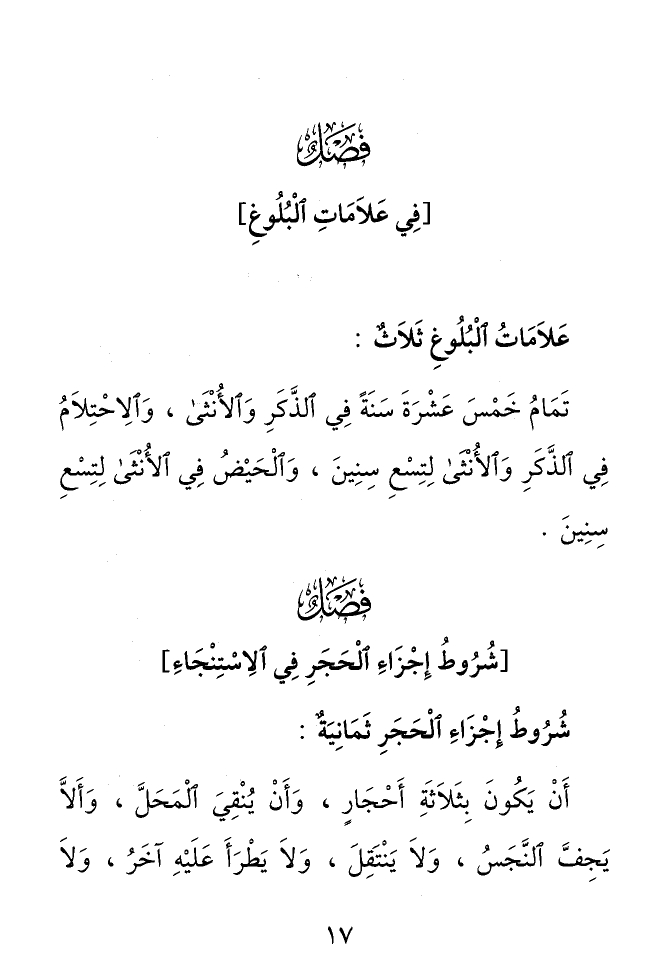 فَصْلٌ
[فِي عَلاَمَاتِ ٱلْبُلُوغِ]
عَلاَمَاتُ ٱلْبُلُوغِ ثَلاَثٌ :
تَمَامُ خَمْسَ عَشْرَةَ سَنَةً فِي ٱلذَّكَرِ وَٱلأُنْثَىٰ ، وَٱلِاحْتِلاَمُ
فِي ٱلذَّكَرِ وَٱلأُنْثَىٰ لِتِسْعِ سِنِينَ ، وَٱلْحَيْضُ فِي ٱلأُنْثَىٰ لِتِسْعِ
سِنِينَ .
فَصْلٌ
[شُرُوطُ إِجْزَاءِ ٱلْحَجَرِ فِي ٱلِاسْتِنْجَاءِ]
شُرُوطُ إِجْزَاءِ ٱلْحَجَرِ ثَمَانِيَةٌ :
أَنْ يَكُونَ بِثَلاَثَةِ أَحْجَارٍ ، وَأَنْ يُنْقِيَ ٱلْمَحَلَّ ، وَأَلاَّ
يَجِفَّ ٱلنَّجَسُ ، وَلاَ يَنْتَقِلَ ، وَلاَ يَطْرَأَ عَلَيْهِ آخَرُ ، وَلاَ
١٧